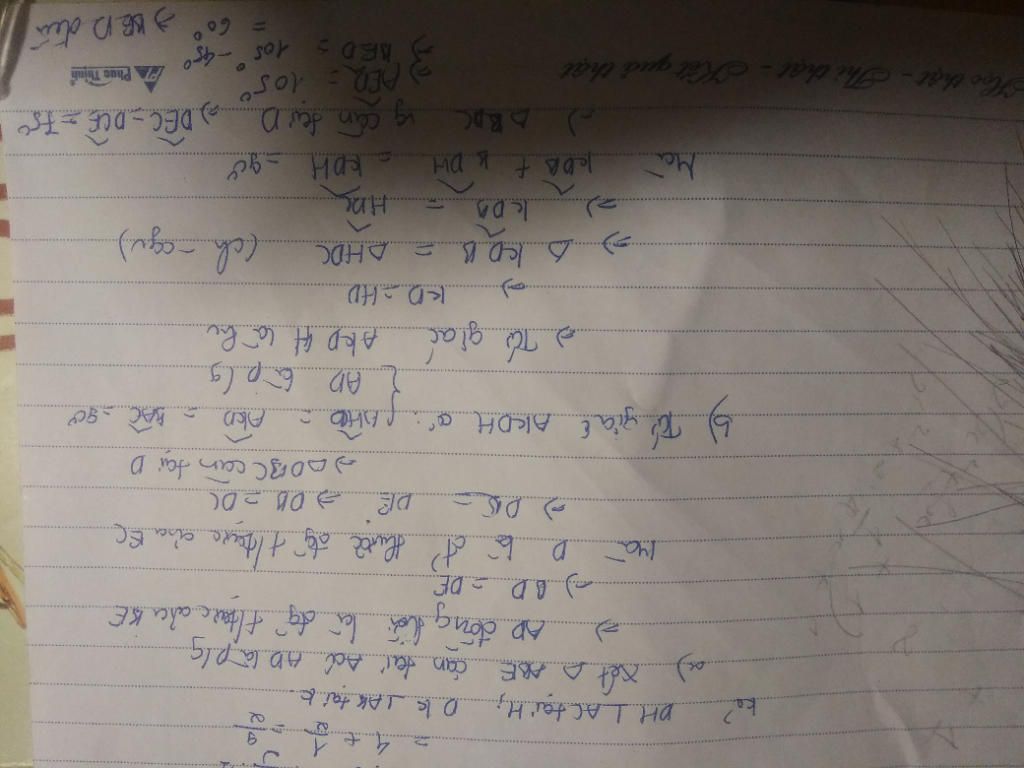 = 4 + 1/2 = 9/2
kẻ DH ⊥ AC tại H; DK ⊥ AB tại K
a) Xét △ ABE cân tại A có AD là p/g
⇒ AD đồng thời là đg t/trực của BE
⇒ BD = DE
Mà D là thuộc đg t/trực của EC
⇒ DE ⇒ DB = DC
⇒ △DBC cân tại D
b) Tứ giác AKDH có: { AHD = AKD = BAC = 90°
AD là p/g
⇒ Tứ giác AKDH là hv
⇒ KD = HD
⇒ △ KDB = △HDC (ch - cgv)
⇒ KDB = HDC
Mà KDB + BDH = KDH = 90°
⇒ △BDC vg cân tại D ⇒ DEC = DCE = 75°
⇒ AED = 105°
⇒ BED = 105° - 45°
= 60° ⇒ BED đều
Phúc Thịnh
Học thật - Thi thật - Kết quả thật